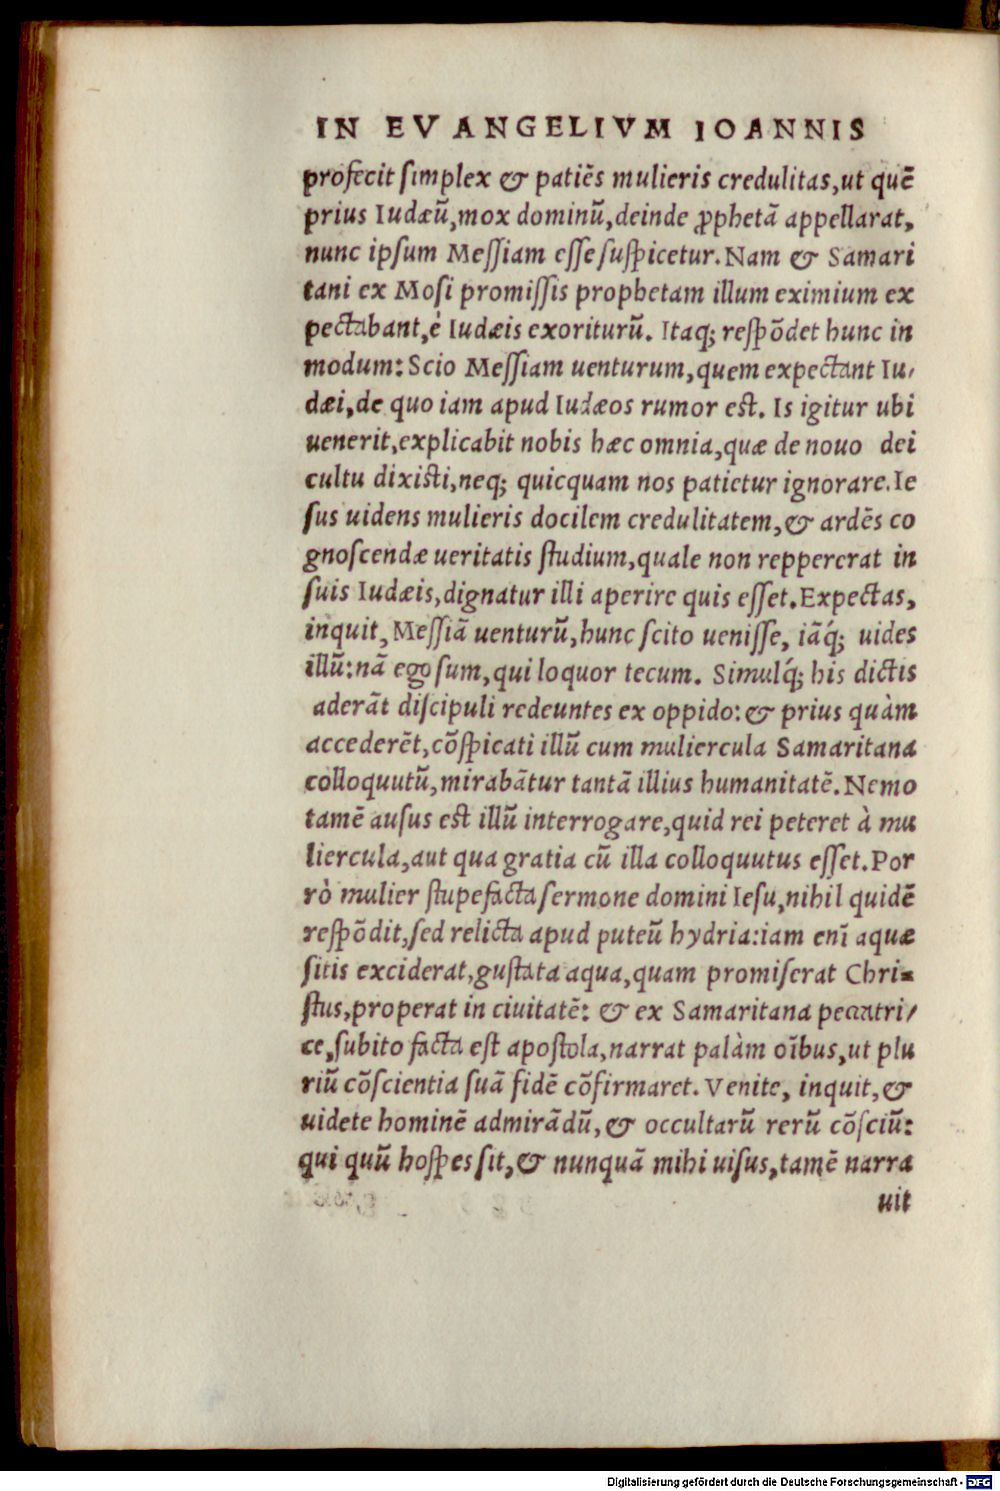 IN EVANGELIVM IOANNIS
profecit simplex & patiēs mulieris credulitas, ut quē
prius Iudæū, mox dominū, deinde ꝓphetā appellarat,
nunc ipsum Messiam esse suspicetur. Nam & Samari
tani ex Mosi promissis prophetam illum eximium ex
pectabant, è Iudæis exoriturū. Itaq; respōdet hunc in
modum: Scio Messiam uenturum, quem expectant Iu/
dæi, de quo iam apud Iudæos rumor est. Is igitur ubi
uenerit, explicabit nobis hæc omnia, quæ de nouo dei
cultu dixisti, neq; quicquam nos patietur ignorare. Ie
sus uidens mulieris docilem credulitatem, & ardēs co
gnoscendæ ueritatis studium, quale non reppererat in
suis Iudæis, dignatur illi aperire quis esset. Expectas,
inquit, Messiā uenturū, hunc scito uenisse, iāq́; uides
illū: nā ego sum, qui loquor tecum. Simulq́; his dictis
aderāt discipuli redeuntes ex oppido: & prius quàm
accederēt, cōspicati illū cum muliercula Samaritana
colloquutū, mirabātur tantā illius humanitatē. Nemo
tamē ausus est illū interrogare, quid rei peteret à mu
liercula, aut qua gratia cū illa colloquutus esset. Por
rò mulier stupefacta sermone domini Iesu, nihil quidē
respōdit, sed relicta apud puteū hydria: iam enī aquæ
sitis exciderat, gustata aqua, quam promiserat Chri=
stus, properat in ciuitatē: & ex Samaritana peccatri/
ce, subito facta est apostola, narrat palàm oībus, ut plu
riū cōscientia suā fidē cōfirmaret. Venite, inquit, &
uidete hominē admirādū, & occultarū rerū cōsciū:
qui quū hospes sit, & nunquā mihi uisus, tamē narra
uit
Digitalisierung gefördert durch die Deutsche Forschungsgemeinschaft - DFG